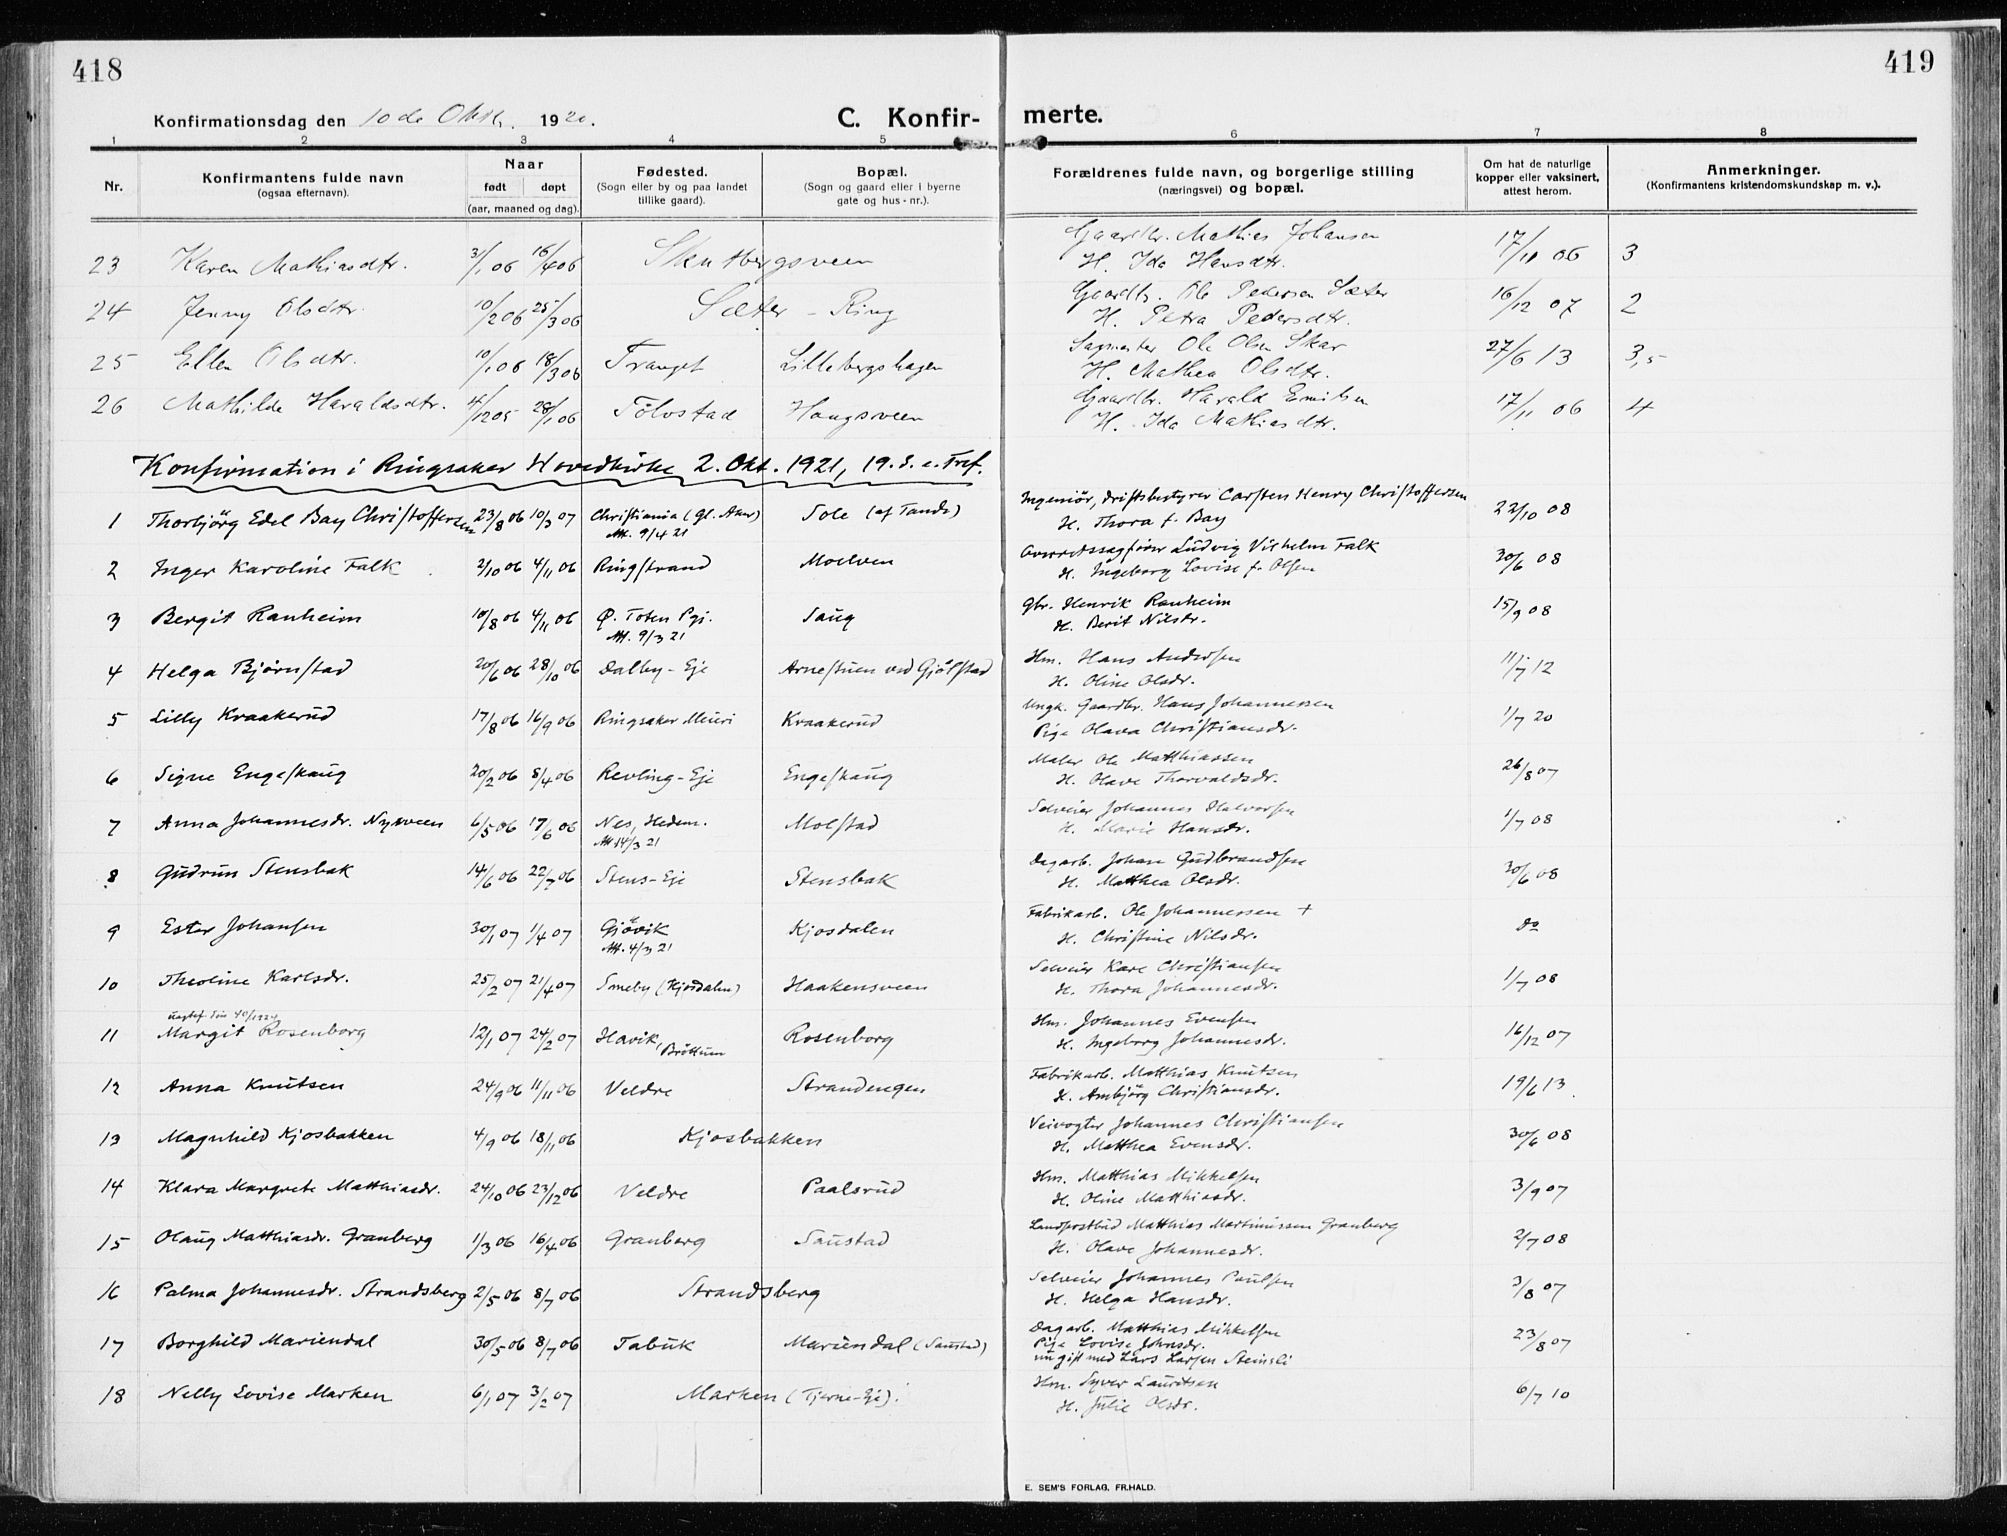 418
419
Konfirmationsdag den 10de Oktb. 1920.
C. Konfirmerte.
1 2 3 4 5 6 7 8
Nr.
Konfirmantens fulde navn (ogsaa efternavn).
Naar født døpt (aar, maaned og dag).
Fødested. (Sogn eller by og paa landet tillike gaard).
Bopæl. (Sogn og gaard eller i byerne gate og hus-nr.).
Forældrenes fulde navn, og borgerlige stilling (næringsvei) og bopæl.
Om hat de naturlige kopper eller vaksinert, attest herom.
Anmerkninger. (Konfirmantens kristendomskundskap m. v.).
23 Karen Mathiasdtr. 3/1 06 16/4 06 Skutbergsveen Gaardbr. Mathias Johansen 17/11 06 3
H. Ida Hansdtr.
24 Jenny Olsdtr. 10/2 06 25/3 06 Sæter - Ring Gaardbr. Ole Pedersen Sæter 16/12 07 2
H. Petra Pedersdtr.
25 Ellen Olsdtr. 10/1 06 18/3 06 Tranget Lillebergshagen Sagmester Ole Olsen Skar 27/6 13 3,5
H. Mathea Olsdtr.
26 Mathilde Haraldsdtr. 4/12 05 28/1 06 Tolvstad Haugsveen Gaardbr. Harald Emilsen 17/11 06 4
H. Ida Mathiasdtr.
Konfirmation i Ringsaker Hovedkirke 2. Okt. 1921, 19. s. e. Tref.
1 Thorbjörg Edel Bay Christoffersen 23/8 06 10/3 07 Christiania (Gl. Aker) Sole (af Tande) Ingeniör, driftsbestyrer Carsten Henry Christoffersen 22/10 08
Att. 9/4 21 H. Thora f. Bay
2 Inger Karoline Falk 2/10 06 4/11 06 Ringstrand Moelven Overretssagförer Ludvig Vilhelm Falk 30/6 08
H. Ingeborg Lovise f. Olsen
3 Bergit Ranheim 10/8 06 4/11 06 Ø. Toten Pgj. Saug Gbr. Henrik Ranheim 15/9 08
Att. 9/3 21 H. Berit Nilsdr.
4 Helga Bjørnstad 20/6 06 28/10 06 Dalby-Eje Arnestuen ved Gjölstad Hm. Hans Andersen 11/7 12
H. Oline Olsdr.
5 Lilly Kraakerud 17/8 06 16/9 06 Ringsaker Meieri Kraakerud Ungk. Gaardbr. Hans Johannessen 1/7 20
Pige Olava Christiansdr.
6 Signe Engeskaug 20/2 06 8/4 06 Revling-Eje Engeskaug Maler Ole Matthiassen 26/8 07
H. Olave Thorvaldsdr.
7 Anna Johannesdr. Nysveen 6/5 06 17/6 06 Nes, Hedem. Molstad Selveier Johannes Halvorsen 1/7 08
Att 14/3 21 H. Marie Hansdr.
8 Gudrun Stensbak 14/6 06 22/7 06 Stens-Eje Stensbak Dagarb. Johan Gudbrandsen 30/6 08
H. Matthea Olsdr.
9 Ester Johansen 30/1 07 1/4 07 Gjövik Kjosdalen Fabrikarb. Ole Johannessen + do
Att. 4/3 21 H. Christine Nilsdr.
10 Theoline Karlsdr. 25/2 07 21/4 07 Smeby (Kjosdalen) Haakensveen Selveier Karl Christiansen 1/7 08
H. Thora Johannesdr.
11 Margit Rosenborg 12/1 07 24/2 07 Havik, Bröttum Rosenborg Hm. Johannes Evensen 16/12 07
H. Ingeborg Johannesdr.
12 Anna Knutsen 24/9 06 11/11 06 Veldre Strandengen Fabrikarb. Matthias Knutsen 19/6 13
H. Arnbjörg Christiansdr.
13 Magnhild Kjosbakken 4/9 06 18/11 06 Kjosbakken Veivogter Johannes Christiansen 30/6 08
H. Matthea Evensdr.
14 Klara Margrete Matthiasdr. 24/10 06 23/12 06 Veldre Paalsrud Hm. Matthias Mikkelsen 3/9 07
H. Oline Matthiasdr.
15 Olaug Matthiasdr. Granberg 1/3 06 16/4 06 Granberg Saustad Landpostbud Matthias Martinussen Granberg 2/7 08
H. Olave Johannesdr.
16 Palma Johannesdr. Strandsberg 2/5 06 8/7 06 Strandsberg Selveier Johannes Paulsen 3/8 07
H. Helga Hansdr.
17 Borghild Mariendal 30/5 06 8/7 06 Tabuk Mariendal (Saustad) Dagarb. Matthias Mikkelsen 23/8 07
Pige Lovise Johnsdr.
nu gift med Lars Larsen Steinsli
18 Nelly Lovise Marken 6/1 07 3/2 07 Marken (Tjerne-Eje). Hm. Syver Lauritsen 6/7 10
H. Julie Olsdr.
E. SEM'S FORLAG, FR.HALD.